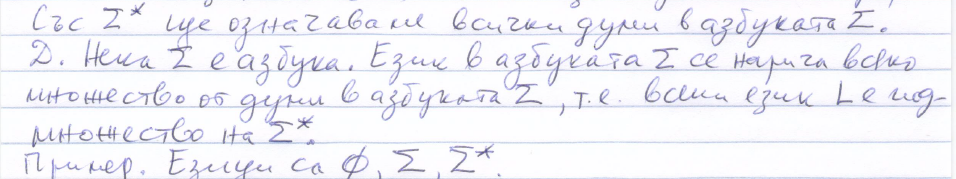 Със Σ* ще означаваме всички думи в азбуката Σ.
Д. Нека Σ е азбука. Език в азбуката Σ се нарича всяко
множество от думи в азбуката Σ, т.е. всеки език L е под-
множество на Σ*.
Пример. Езици са ∅, Σ, Σ*.